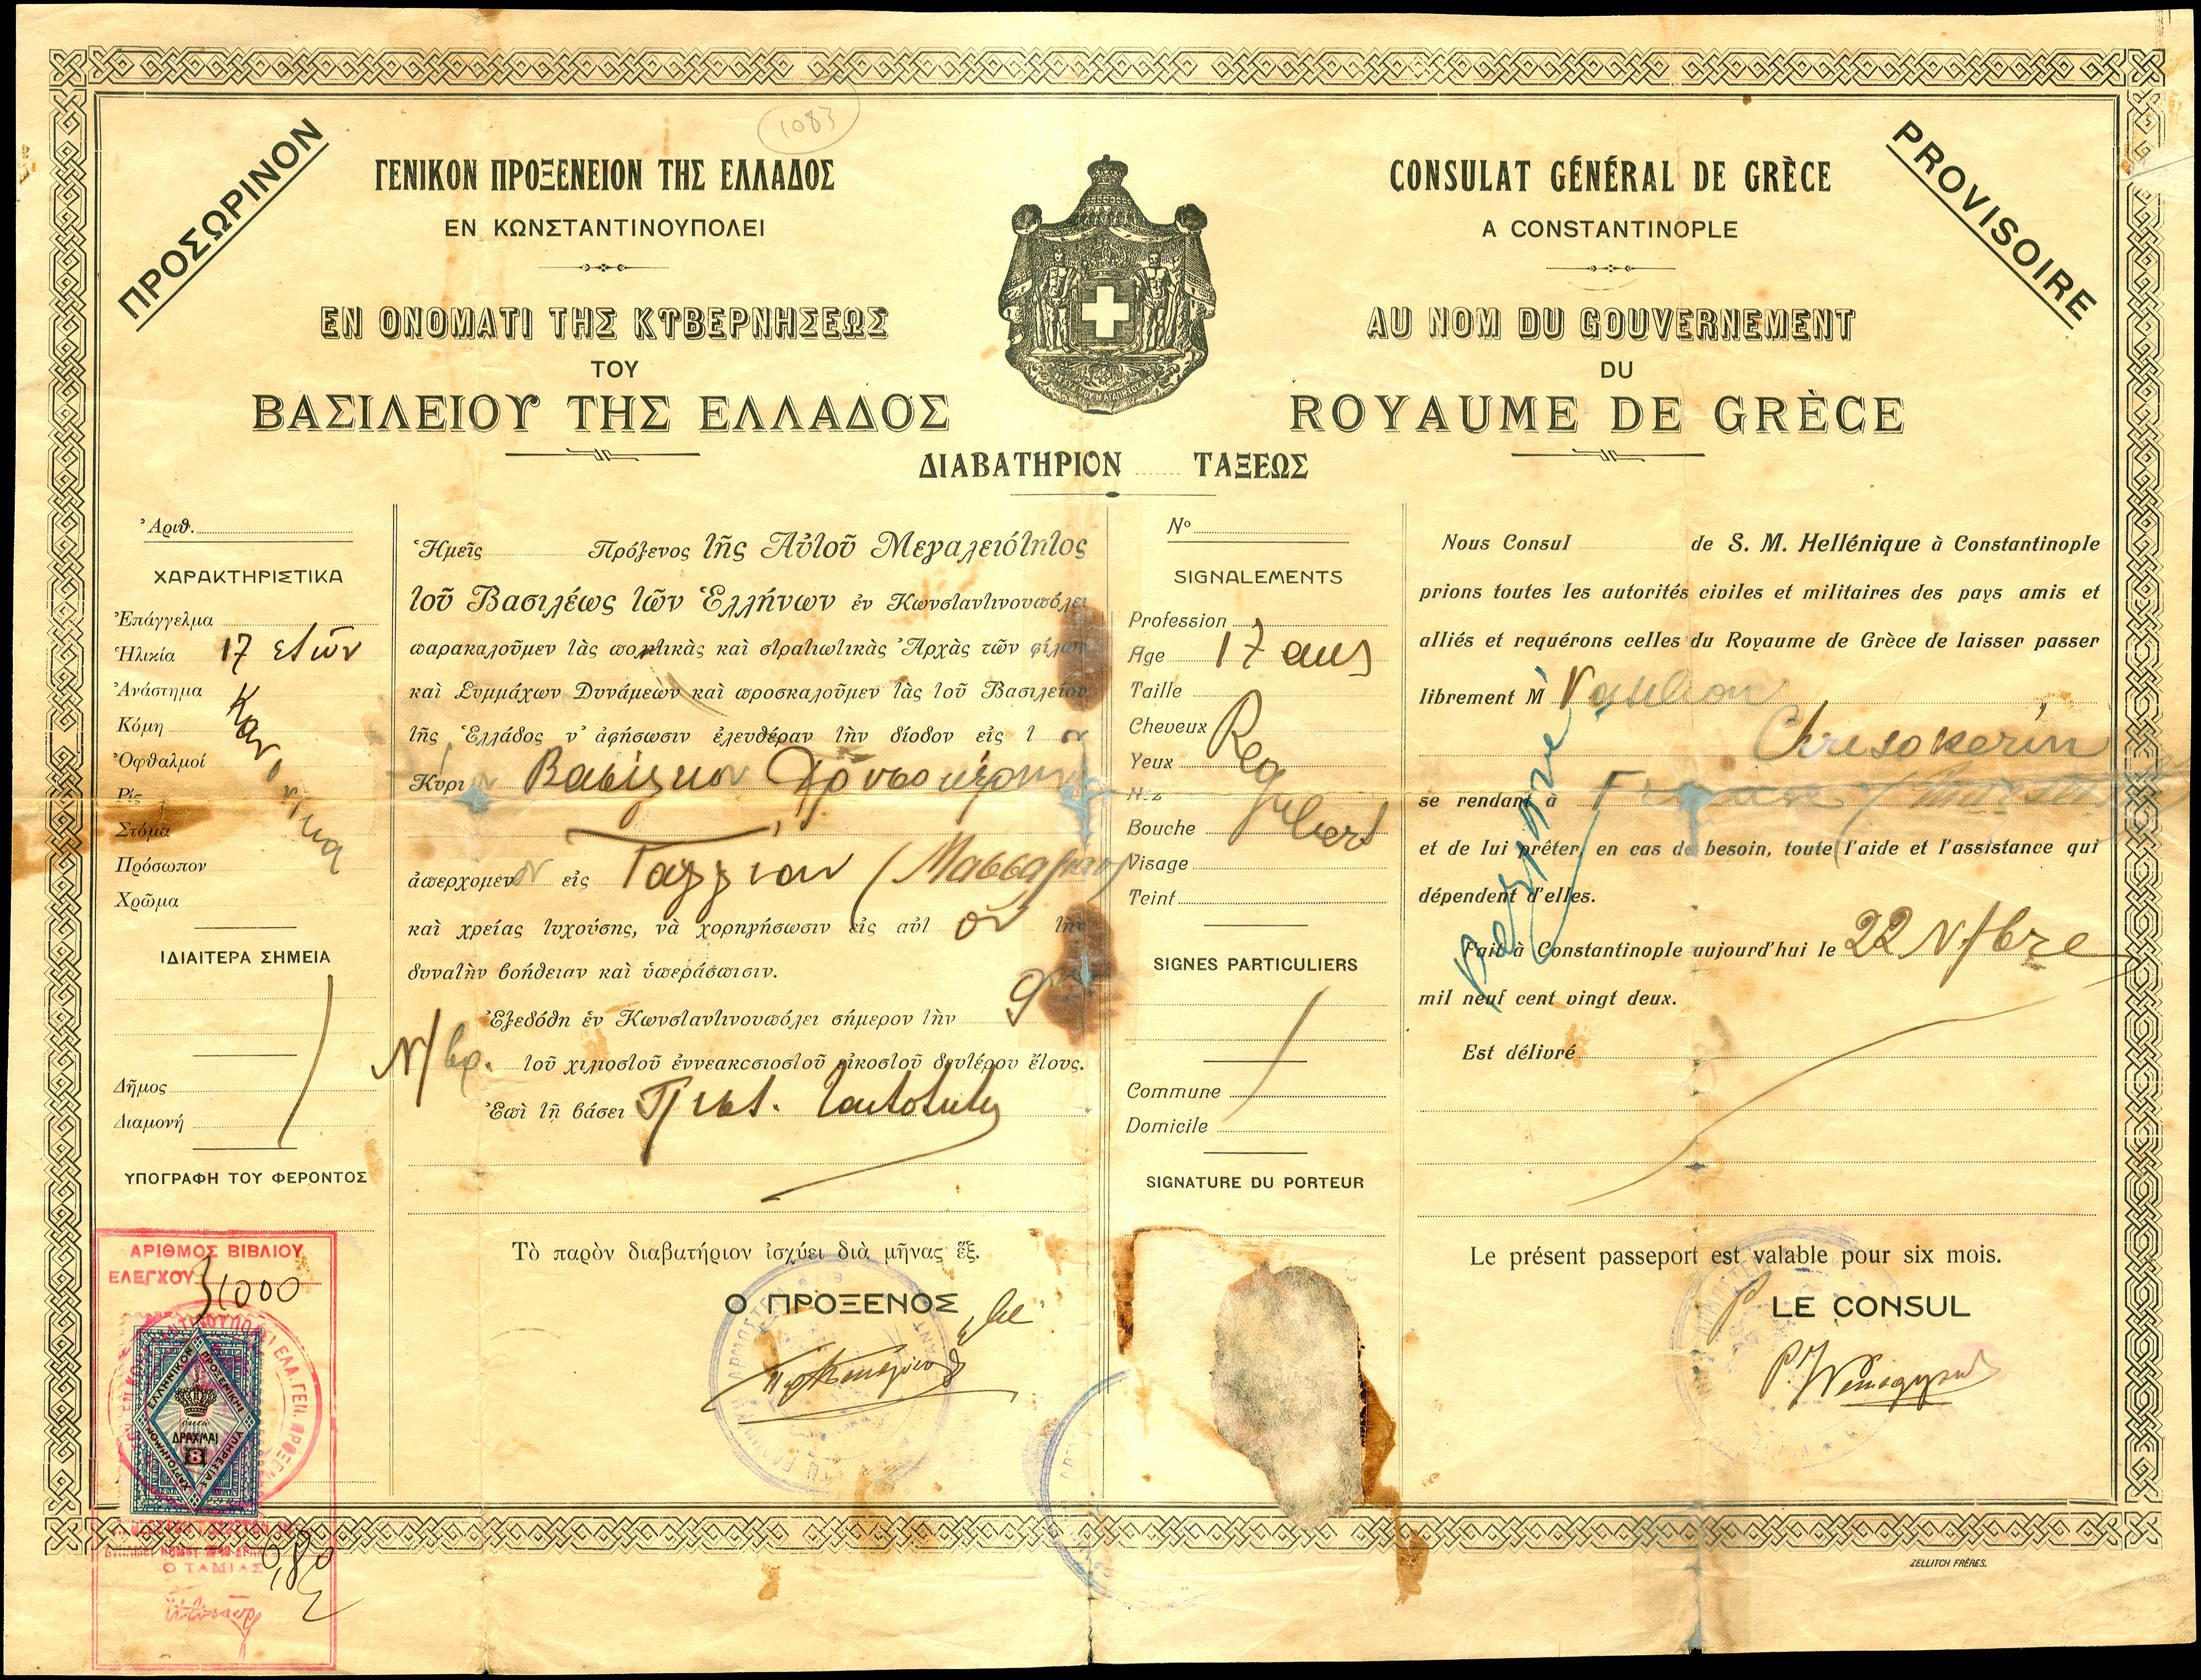 1083
ΠΡΟΣΩΡΙΝΟΝ
ΓΕΝΙΚΟΝ ΠΡΟΞΕΝΕΙΟΝ ΤΗΣ ΕΛΛΑΔΟΣ
ΕΝ ΚΩΝΣΤΑΝΤΙΝΟΥΠΟΛΕΙ
ΕΝ ΟΝΟΜΑΤΙ ΤΗΣ ΚΥΒΕΡΝΗΣΕΩΣ
ΤΟΥ
ΒΑΣΙΛΕΙΟΥ ΤΗΣ ΕΛΛΑΔΟΣ
PROVISOIRE
CONSULAT GÉNÉRAL DE GRÈCE
A CONSTANTINOPLE
AU NOM DU GOUVERNEMENT
DU
ROYAUME DE GRÈCE
ΔΙΑΒΑΤΗΡΙΟΝ ...... ΤΑΞΕΩΣ
Ἀριθ.
ΧΑΡΑΚΤΗΡΙΣΤΙΚΑ
Ἐπάγγελμα
Ἡλικία 17 ετών
Ἀνάστημα
Κόμη
Ὀφθαλμοί
Ρίς
Στόμα
Πρόσωπον
Χρῶμα
Κανονικα
ΙΔΙΑΙΤΕΡΑ ΣΗΜΕΙΑ
Δῆμος
Διαμονή
ΥΠΟΓΡΑΦΗ ΤΟΥ ΦΕΡΟΝΤΟΣ
ΑΡΙΘΜΟΣ ΒΙΒΛΙΟΥ
ΕΛΕΓΧΟΥ 31000
ΕΛΛΗΝΙΚΟΝ ΠΡΟΞΕΝΙΚΗΣ ΥΠΗΡΕΣΙΑΣ ΧΑΡΤΟΣΗΜΟΝ
ΔΡΑΧΜΑΙ
8
Ο ΤΑΜΙΑΣ
Ἡμεῖς Πρόξενος τῆς Αὐτοῦ Μεγαλειότητος
τοῦ Βασιλέως τῶν Ἑλλήνων ἐν Κωνσταντινουπόλει
παρακαλοῦμεν τὰς πολιτικὰς καὶ στρατιωτικὰς Ἀρχὰς τῶν φίλων
καὶ Συμμάχων Δυνάμεων καὶ προσκαλοῦμεν τὰς τοῦ Βασιλείου
τῆς Ἑλλάδος ν' ἀφήσωσιν ἐλευθέραν τὴν δίοδον εἰς τ ον
Κύρι ον Βασίλειον Χρυσοκέρην
ἀπερχομεν ον εἰς Γαλλίαν (Μασσαλίαν)
καὶ χρείας τυχούσης, νὰ χορηγήσωσιν εἰς αὐτ ον τὴν
δυνατὴν βοήθειαν καὶ ὑπεράσπισιν.
Ἐξεδόθη ἐν Κωνσταντινουπόλει σήμερον τὴν 9
Ν/βρ. τοῦ χιλιοστοῦ ἐννεακοσιοστοῦ εἰκοστοῦ δευτέρου ἔτους.
Ἐπὶ τῇ βάσει Πιστ. ταυτοτητος
Τὸ παρὸν διαβατήριον ἰσχύει διὰ μῆνας ἕξ.
Ο ΠΡΟΞΕΝΟΣ
No
SIGNALEMENTS
Profession
Age 17 ans
Taille
Cheveux
Yeux
Nez
Bouche
Visage
Teint
Reguliers
SIGNES PARTICULIERS
Commune
Domicile
SIGNATURE DU PORTEUR
Nous Consul de S. M. Hellénique à Constantinople
prions toutes les autorités civiles et militaires des pays amis et
alliés et requérons celles du Royaume de Grèce de laisser passer
librement M r Vassilion
Chrisokerin
se rendant à France
et de lui prêter, en cas de besoin, toute l'aide et l'assistance qui
dépendent d'elles.
Fait à Constantinople aujourd'hui le 22 N/bre
mil neuf cent vingt deux.
Est délivré
Le présent passeport est valable pour six mois.
LE CONSUL
ZELLITCH FRÈRES.